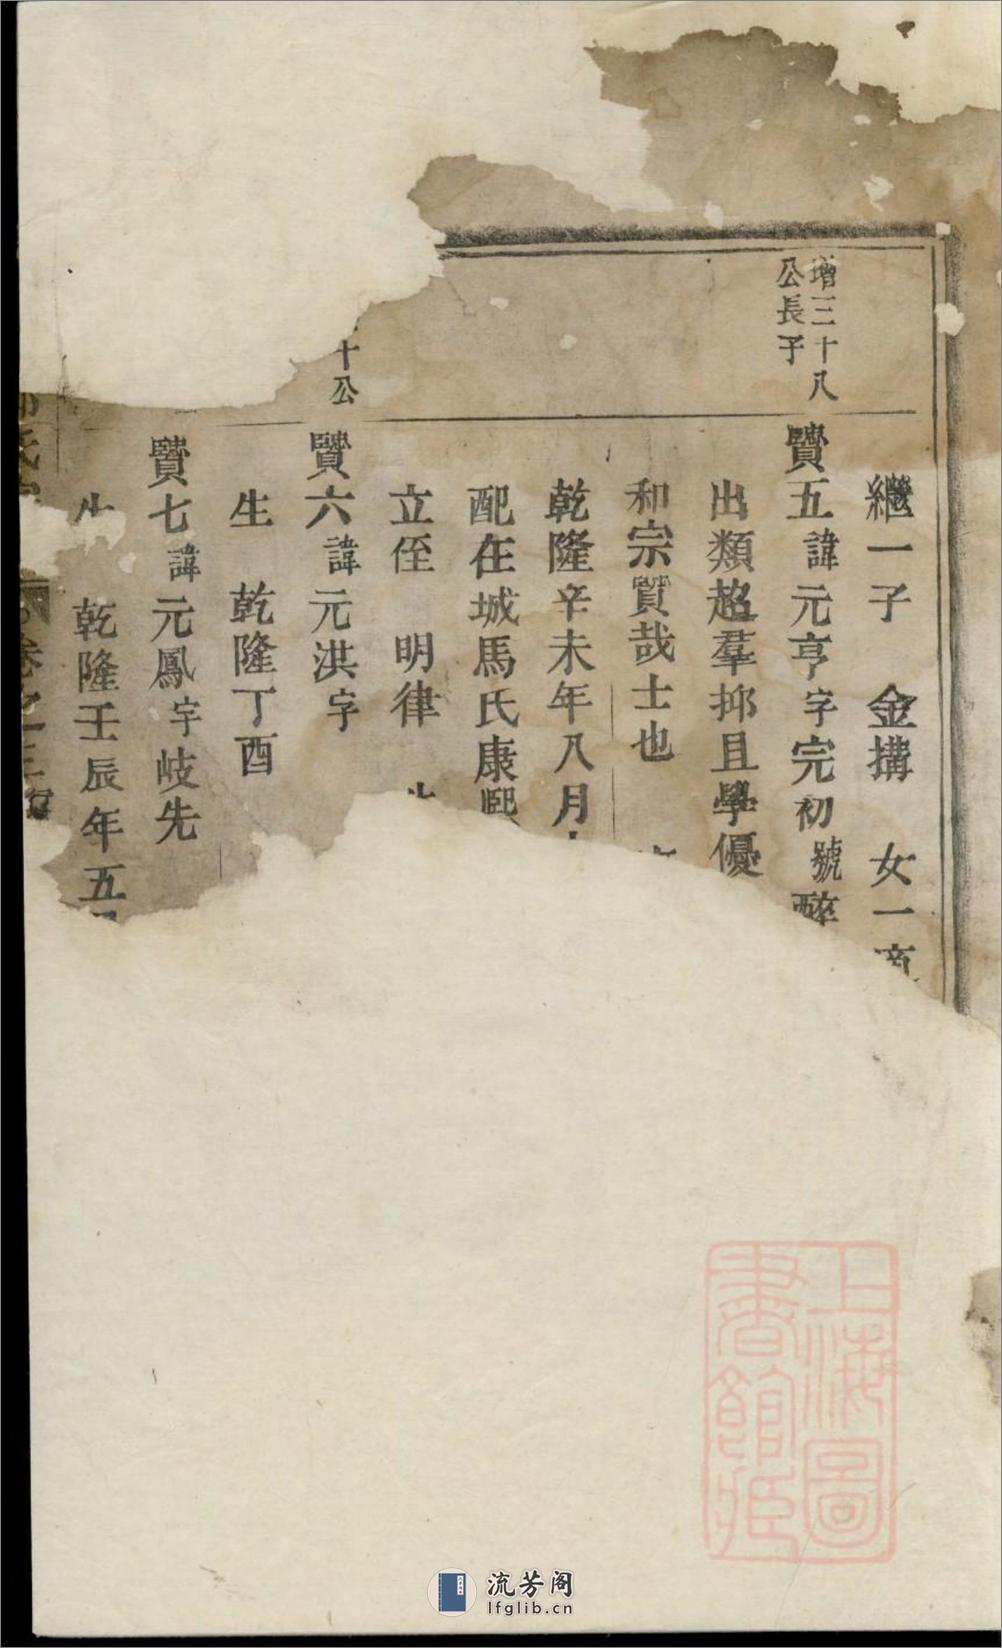 繼一子　金搆　女一適
增三十八
公長子
贒五諱元亨字完初號醉
出類超羣抑且學優
和宗賢哉士也
乾隆辛未年八月
配在城馬氏康熙
立侄　明律
十公
贒六諱元洪字
生　乾隆丁酉
贒七諱元鳳字岐先
生　乾隆壬辰年五
氏
卷之
上海圖
書館藏
流芳阁
lfglib.cn